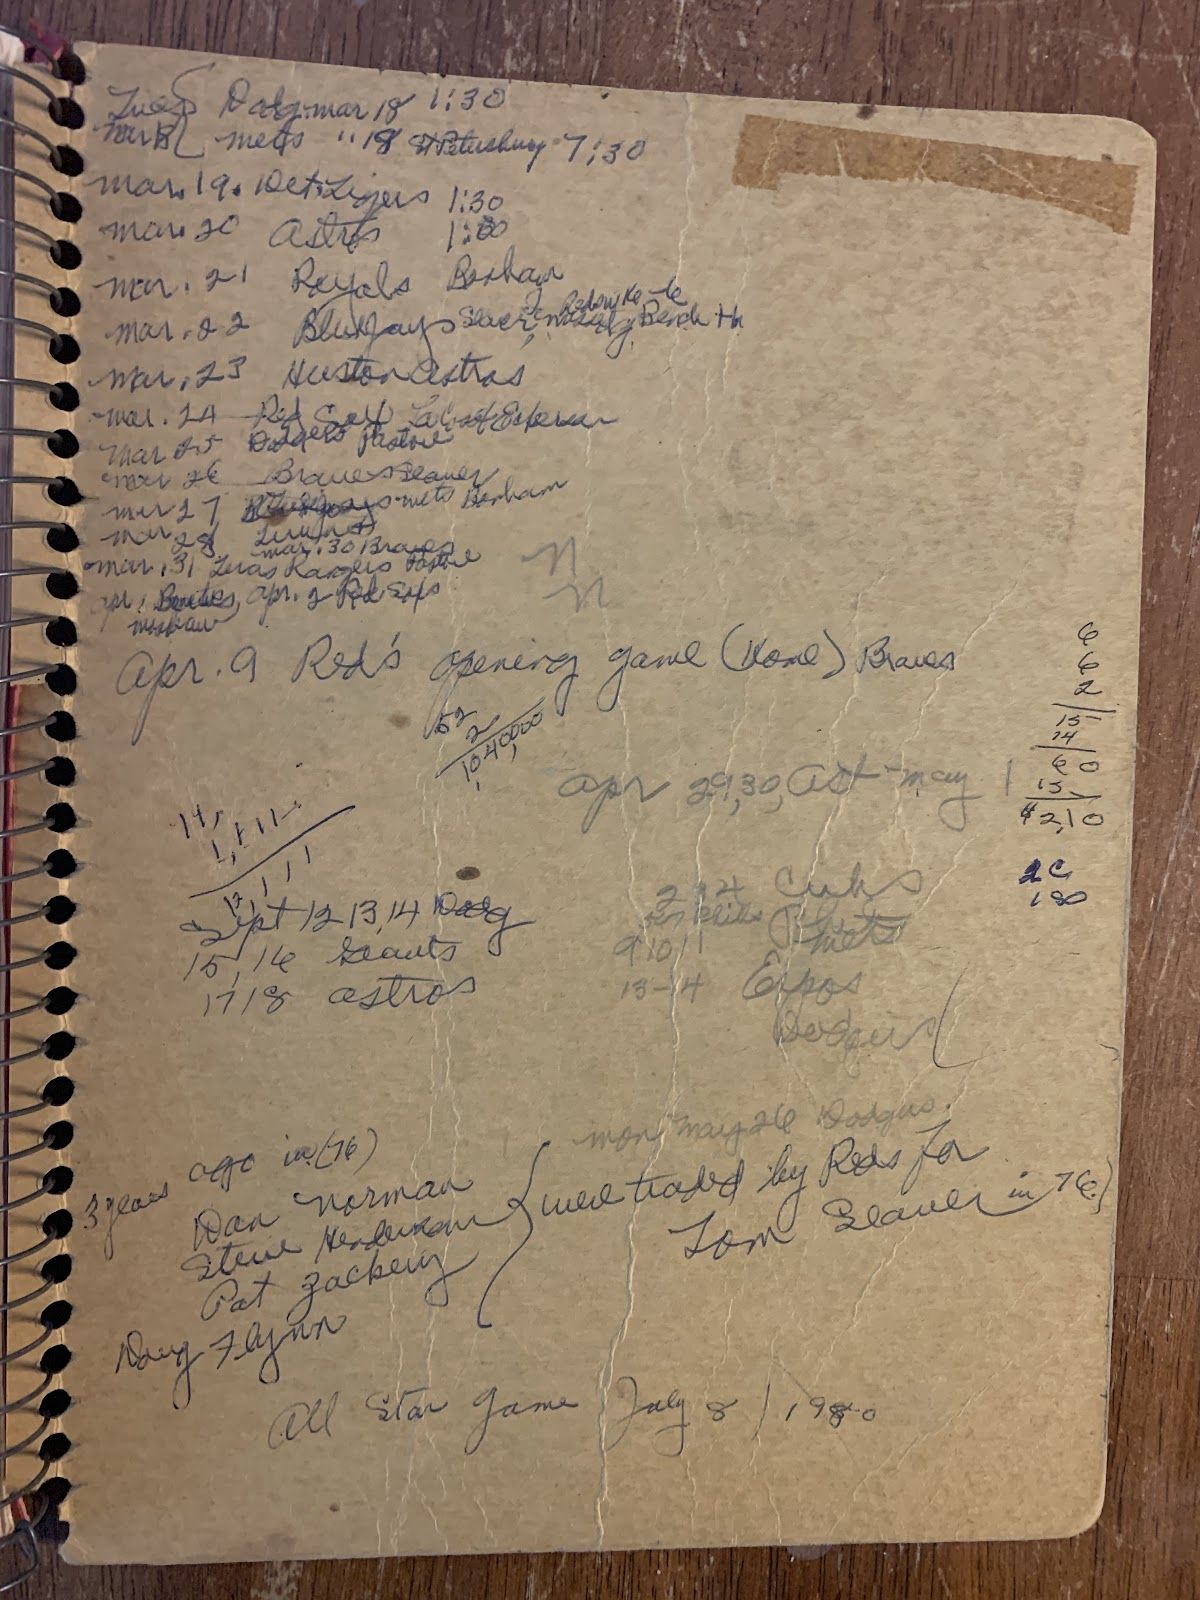 Tues Dodg. mar 18 1:30
Mar 18 mets " 18 St Petersburg 7:30
mar. 19. Det. Tigers 1:30
mar. 20 Astros 1:30
mar. 21 Royals Bonham
mar. 22 BlueJays Seaver, Bench
mar. 23 Huston Astros
mar. 24 Red Sox
mar 25 Dodgers Pastore
mar 26 Braves Seaver
mar 27 mets Bonham
mar 28
mar. 30 Braves
mar. 31 Texas Rangers Pastore
apr. 1 apr. 2 Red Soxs
apr. 9 Red's opening game (Home) Braves
N
N
6
6
2
15
14
60
15
$2,10
2C
180
52
2
10,40,000
apr 29,30, Ast - may 1
14,
1,111
12,111
Sept 12 13,14 Dodg
15, 16 Geants
17 18 astros
2 3 4 Cubs
Phills
9 10 11 mets
13-14 Expos
Dodgers
mon, may 26 Dodgers.
3 years ago in (76)
Dan Norman
Steve Henderson
Pat Zackery
Doug Flynn
were traded by Reds for
Tom Seaver in 76.)
All Star Game July 8 / 1980